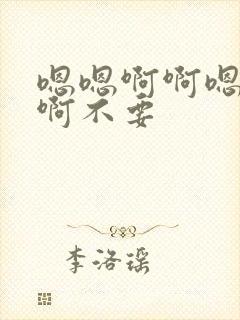 嗯嗯啊啊嗯
啊不要
李洛瑶